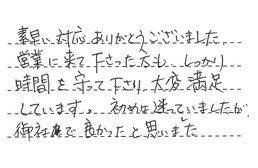 素早い対応、ありがとうございました。
営業に来て下さった方も、しっかり
時間を守って下さり、大変満足
しています。初めは迷っていましたが、
御社で良かったと思いました